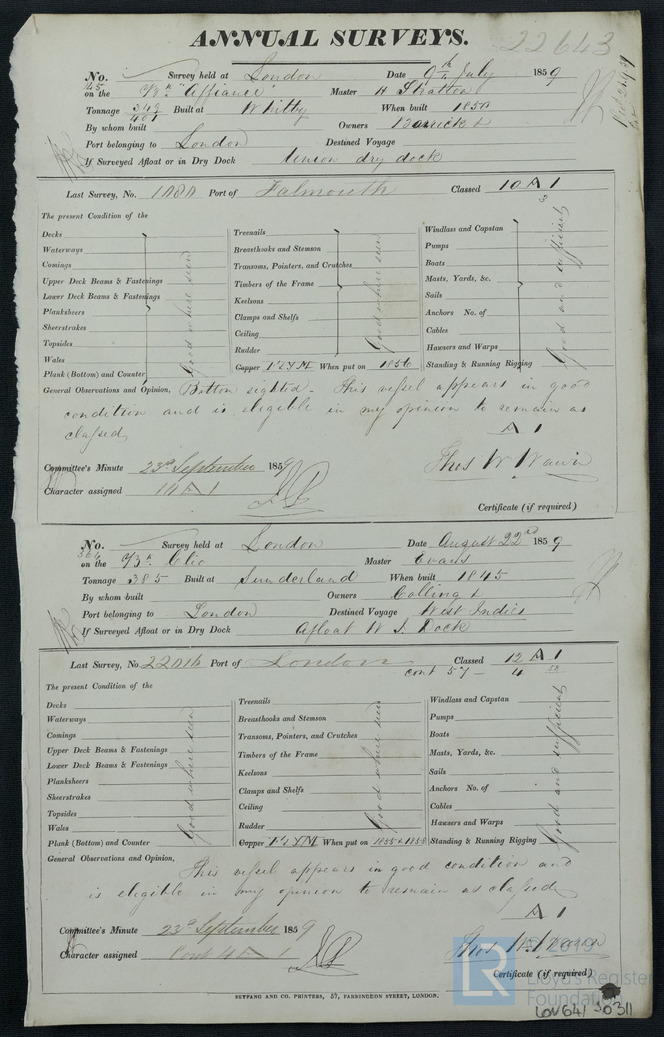 ANNUAL SURVEYS.
22643
No. Survey held at London Date 9th July 1859
on the "Alliance" Master H Stratton
Tonnage 349 Built at Whitby When built 1850
By whom built Owners Barrick &
Port belonging to London Destined Voyage
If Surveyed Afloat or in Dry Dock Union dry dock
Last Survey, No. Port of Falmouth Classed 10 A 1
The present Condition of the
Decks
Waterways
Comings
Upper Deck Beams & Fastenings
Lower Deck Beams & Fastenings
Planksheers
Sheerstrakes
Topsides
Wales
Plank (Bottom) and Counter
Good where seen
Treenails
Breasthooks and Stemson
Transoms, Pointers, and Crutches
Timbers of the Frame
Keelsons
Clamps and Shelfs
Ceiling
Rudder
Copper When put on 1856
Good where seen
Windlass and Capstan
Pumps
Boats
Masts, Yards, &c.
Sails
Anchors No. of
Cables
Hawsers and Warps
Standing & Running Rigging
Good and sufficient
General Observations and Opinion, Bottom sighted - This vessel appears in good
condition and is eligible in my opinion to remain as
classed
A 1
Committee's Minute 23rd September 1859
Character assigned 10 A 1
Thos W Wawn
Certificate (if required)
No. Survey held at London Date August 22nd 1859
on the Clio Master Evans
Tonnage 385 Built at Sunderland When built 1845
By whom built Owners Colling &
Port belonging to London Destined Voyage West Indies
If Surveyed Afloat or in Dry Dock Afloat W I Dock
Last Survey, No. Port of London Classed 12 A 1
cont 57 - 4
The present Condition of the
Decks
Waterways
Comings
Upper Deck Beams & Fastenings
Lower Deck Beams & Fastenings
Planksheers
Sheerstrakes
Topsides
Wales
Plank (Bottom) and Counter
Good where seen
Treenails
Breasthooks and Stemson
Transoms, Pointers, and Crutches
Timbers of the Frame
Keelsons
Clamps and Shelfs
Ceiling
Rudder
Copper When put on 1855 & 1858
Good where seen
Windlass and Capstan
Pumps
Boats
Masts, Yards, &c.
Sails
Anchors No. of
Cables
Hawsers and Warps
Standing & Running Rigging
Good and sufficient
General Observations and Opinion,
This vessel appears in good condition and
is eligible in my opinion to remain as classed
A 1
Committee's Minute 23rd September 1859
Character assigned Cont 4 A 1
Thos W Wawn
Certificate (if required)
SEYFANG AND CO. PRINTERS, 57, FARRINGDON STREET, LONDON.
LR
© 2019
Lloyd's Register
Foundation